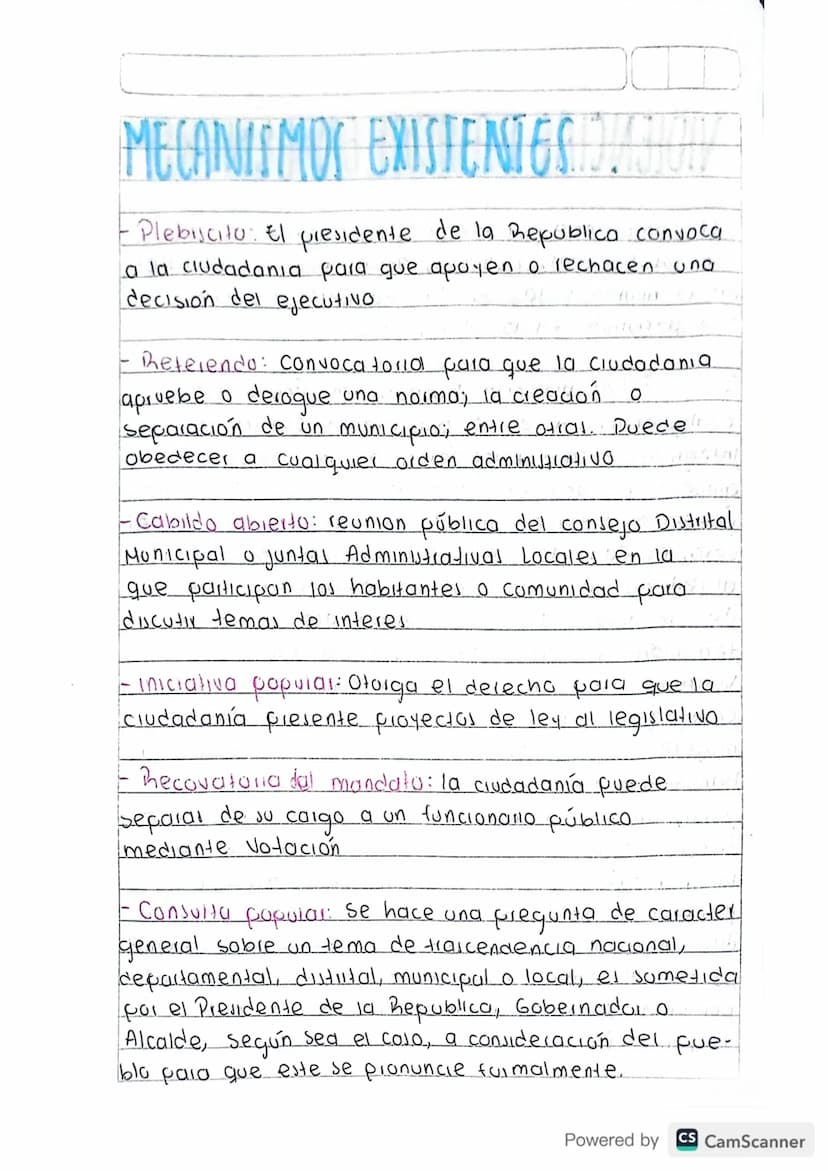 MECANISMOS EXISTENTES.
- Plebiscito: El presidente de la Republica convoca
a la ciudadania para que apoyen o rechacen una
decisión del ejecutivo
- Referendo: Convocatoria para que la ciudadania
apruebe o derogue una norma; la creación o
separación de un municipio; entre otras. Puede
obedecer a cualquier orden administrativo
- Cabildo abierto: reunion pública del consejo Distrital
Municipal o juntas Administrativas Locales en la
que participan los habitantes o comunidad para
discutir temas de interes
- Iniciativa popular: Otorga el derecho para que la
ciudadanía presente proyectos de ley al legislativo
- Recovatoria del mandato: la ciudadanía puede
separar de su cargo a un funcionario público
mediante Votación
- Consulta popular: se hace una pregunta de caracter
general sobre un tema de trascendencia nacional,
departamental, distrital, municipal o local, es sometida
por el Presidente de la Republica, Gobernador o
Alcalde, según sea el caso, a consideración del pue-
blo para que este se pronuncie formalmente.
Powered by CS CamScanner